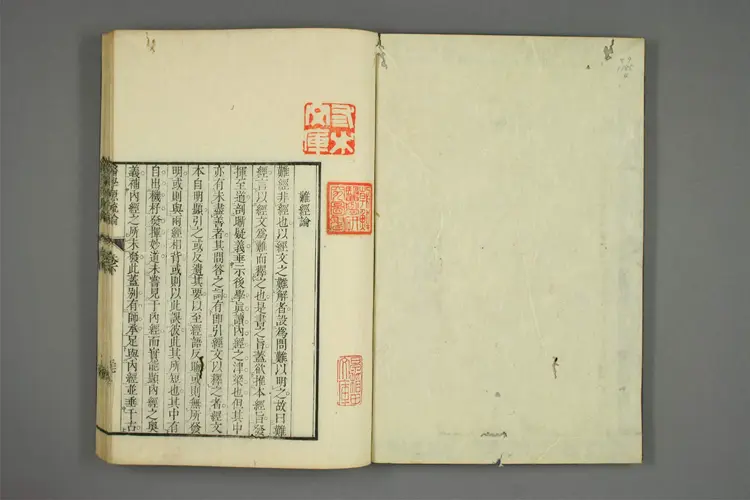 難經論
難經非經也以經文之難解者設爲問難以明之故曰難
經言以經文爲難而釋之也是書之旨蓋欲推本經旨發
揮至道剖晰疑義垂示後學眞讀內經之津梁也但其中
亦有未盡善者其問答之詞有即引經文以釋之者經文
本自明顯引之或反遺其要以至經語反晦或則無所發
明或則與兩經相背或則以此誤彼此其所短也其中有
自出機杼發揮妙道未嘗見于內經而實能顯內經之奧
義補內經之所未發此蓋別有師承足與內經並垂千古
醫學源流論
文庫